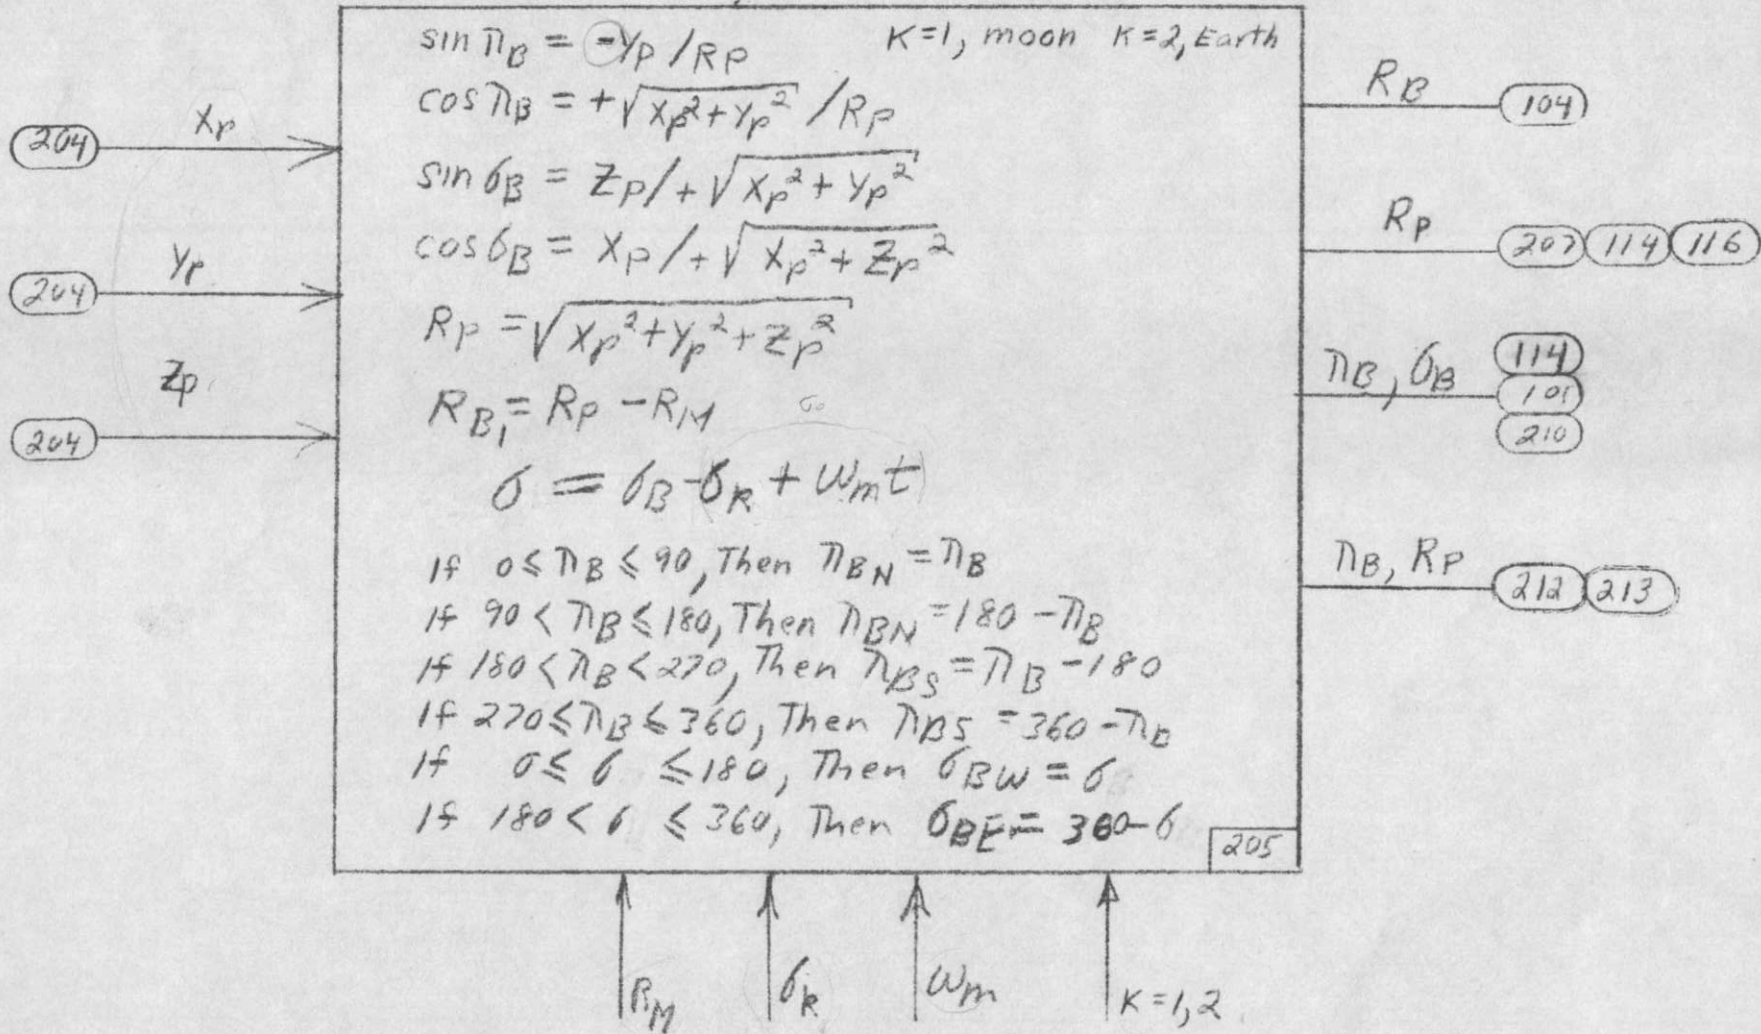 sin π_B = -Y_P / R_P    K=1, moon  K=2, Earth
cos π_B = +√(X_P² + Y_P²) / R_P
sin σ_B = Z_P / +√(X_P² + Y_P²)
cos σ_B = X_P / +√(X_P² + Z_P²)
R_P = √(X_P² + Y_P² + Z_P²)
R_B₁ = R_P - R_M
σ₀
σ = σ_B - σ_k + ω_m t
If 0 ≤ π_B ≤ 90, Then π_BN = π_B
If 90 < π_B ≤ 180, Then π_BN = 180 - π_B
If 180 < π_B < 270, Then π_BS = π_B - 180
If 270 ≤ π_B ≤ 360, Then π_BS = 360 - π_B
If 0 ≤ σ ≤ 180, Then σ_BW = σ
If 180 < σ ≤ 360, Then σ_BE = 360 - σ
205
204 X_P
204 Y_P
Z_P
204
R_B 104
R_P 207 114 116
π_B, σ_B 114
101
210
π_B, R_P 212 213
R_M σ_k ω_m K=1,2